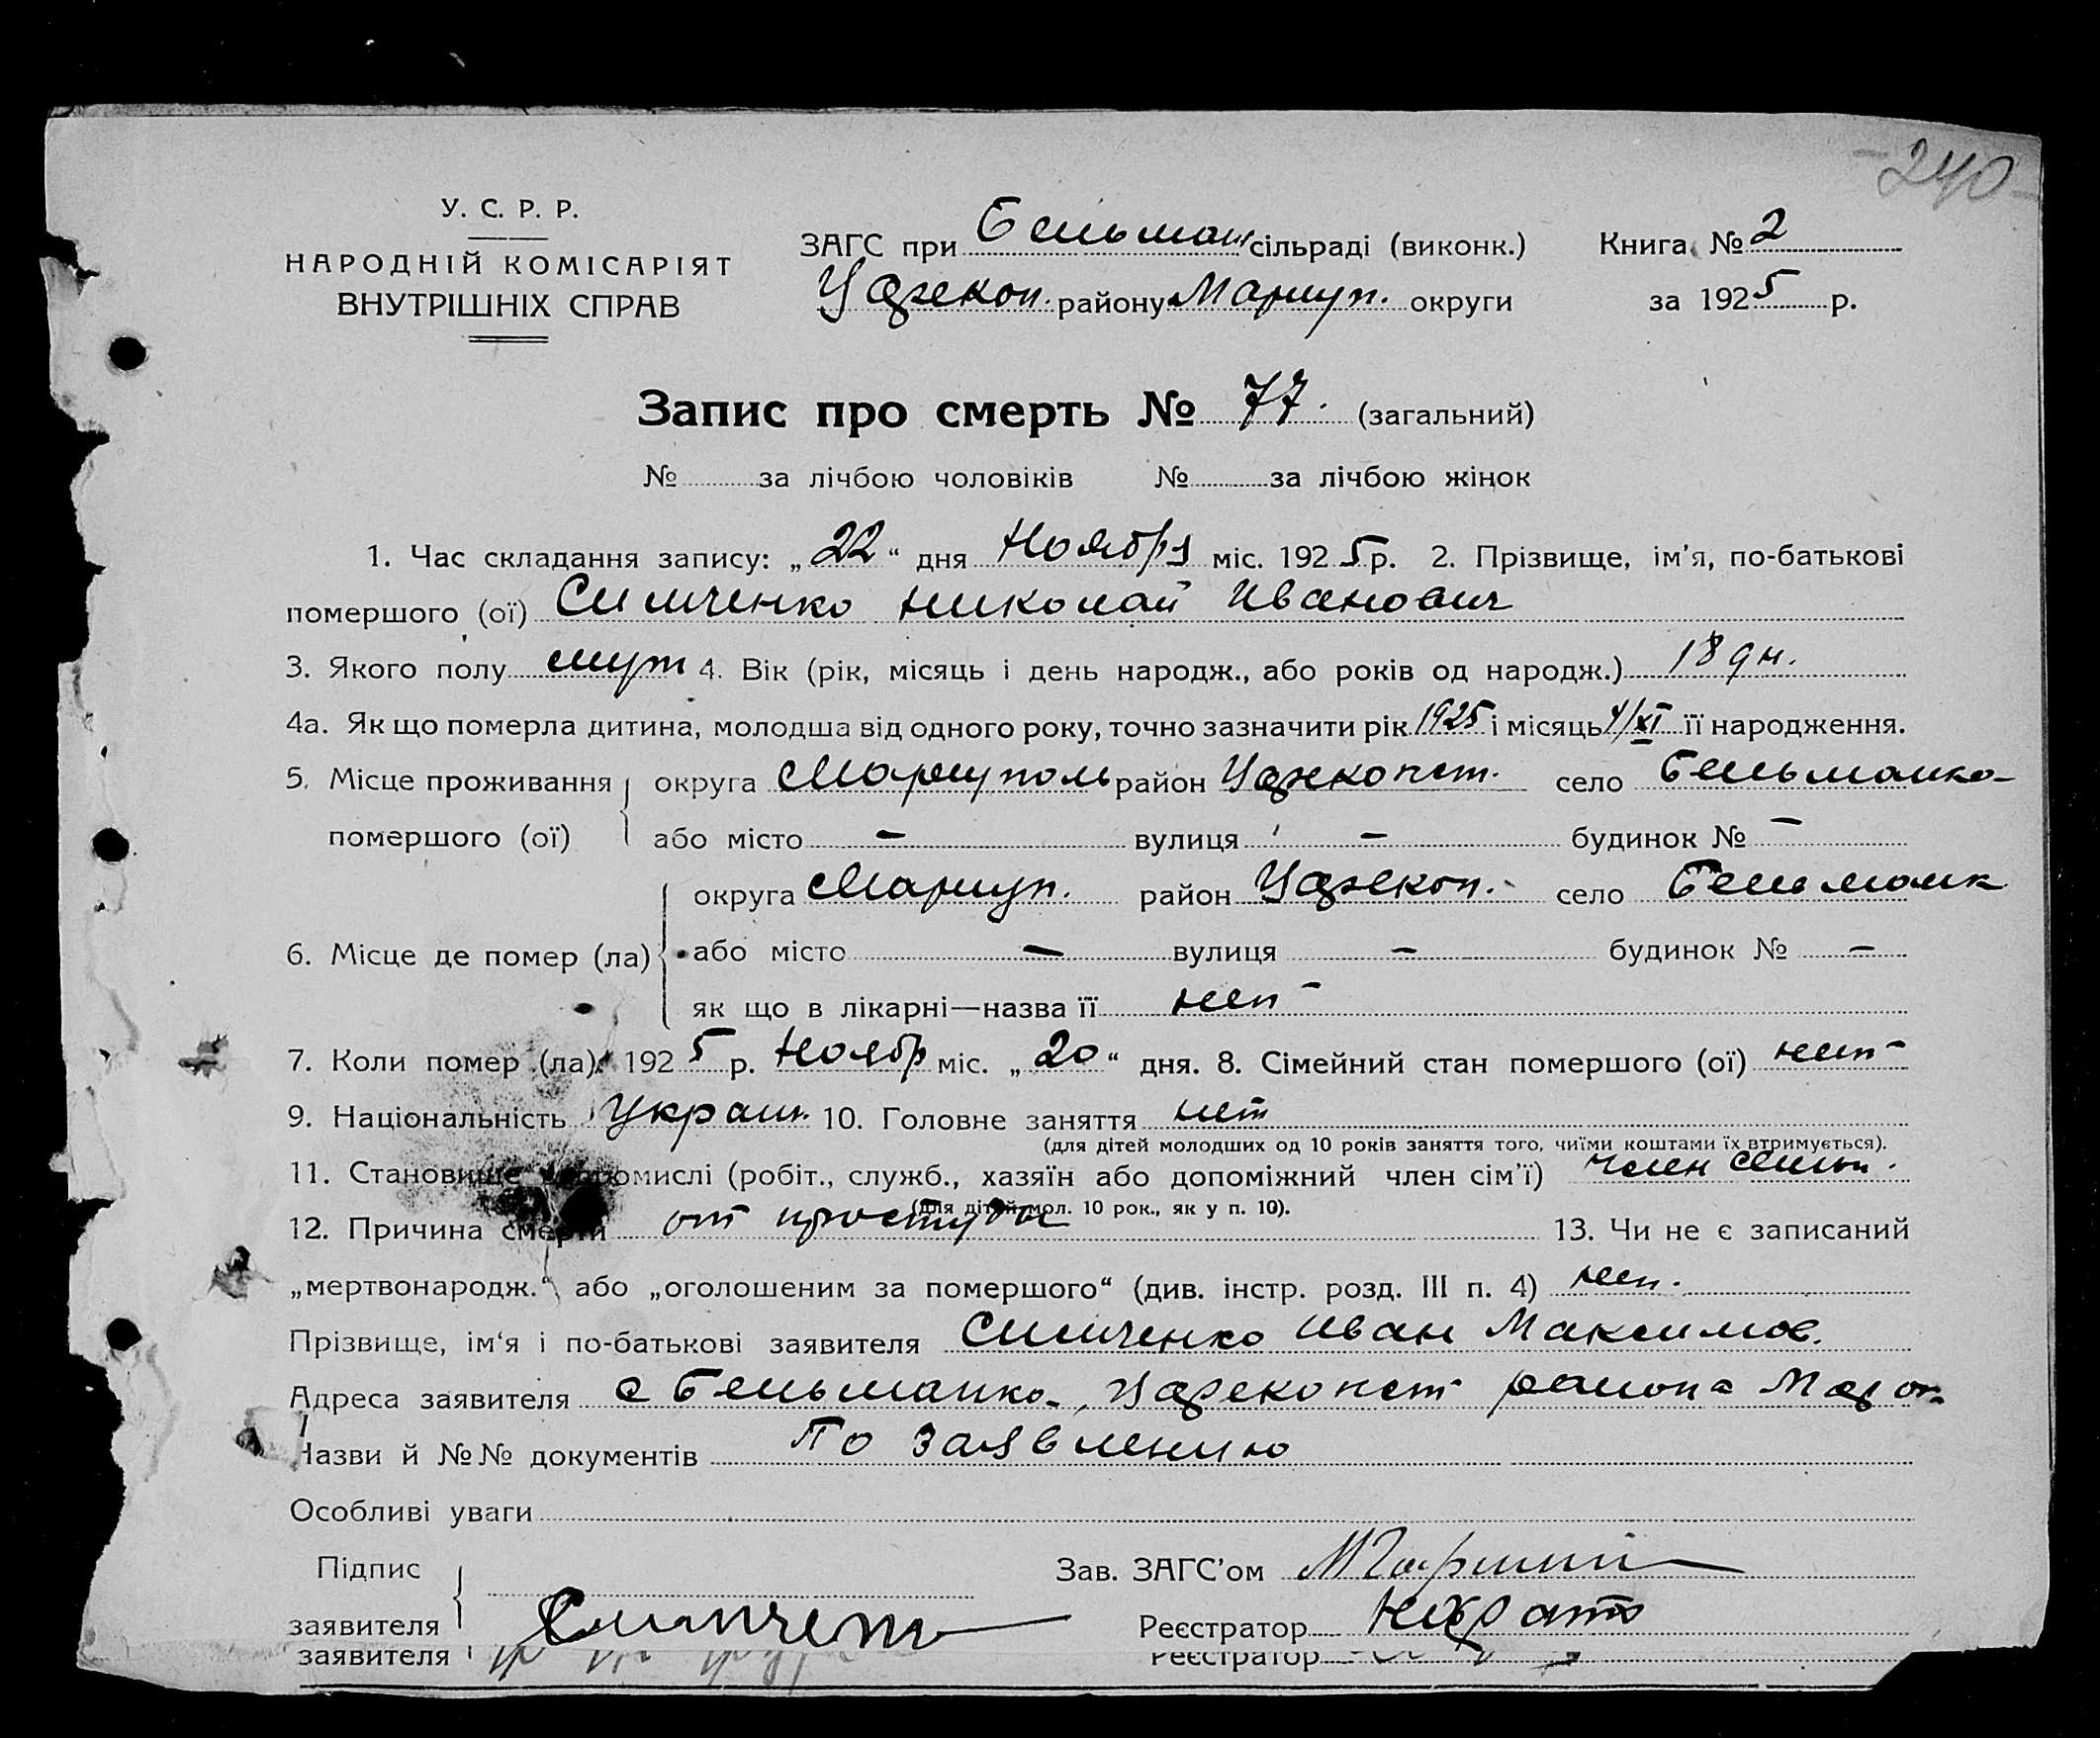 240
У. С. Р. Р.
НАРОДНІЙ КОМІСАРІЯТ
ВНУТРІШНІХ СПРАВ
ЗАГС при Бельман сільраді (виконк.) Книга № 2
Царекон. району Мариуп. округи за 1925 р.
Запис про смерть № 77. (загальний)
№ за лічбою чоловіків № за лічбою жінок
1. Час складання запису: „22“ дня Ноября міс. 1925 р. 2. Прізвище, ім'я, по-батькові
помершого (ої) Симченко Николай Иванович
3. Якого полу муж 4. Вік (рік, місяць і день народж., або років од народж.) 18 дн.
4а. Як що померла дитина, молодша від одного року, точно зазначити рік 1925 і місяць 4/XI її народження.
5. Місце проживання округа Мариуполь район Цареконст. село Бельманка
помершого (ої) або місто — вулиця — будинок № —
округа Мариуп. район Царекон. село Бельманк
6. Місце де помер (ла) або місто — вулиця — будинок № —
як що в лікарні—назва її нет
7. Коли помер (ла) 1925 р. Ноябр міс. „20“ дня. 8. Сімейний стан помершого (ої) нет
9. Національність Украин. 10. Головне заняття нет
(для дітей молодших од 10 років заняття того, чиїми коштами їх втримується).
11. Становище промислі (робіт., служб., хазяїн або допоміжний член сім'ї) член семьи.
(для дітей мол. 10 рок., як у п. 10).
12. Причина смерти от простуды 13. Чи не є записаний
„мертвонародж.“ або „оголошеним за помершого“ (див. інстр. розд. III п. 4) нет.
Прізвище, ім'я і по-батькові заявителя Симченко Иван Максимов.
Адреса заявителя с Бельманка, Цареконст района
Назви й №№ документів По заявлению
Особливі уваги
Підпис Зав. ЗАГС'ом
заявителя Симченко Реєстратор
заявителя Реєстратор